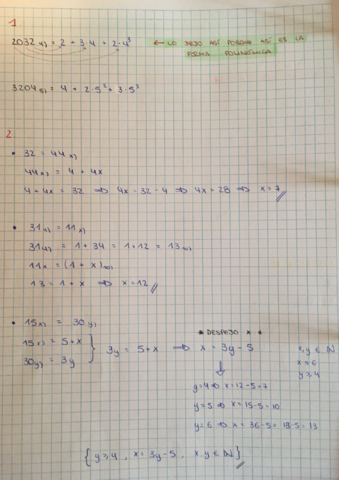 1
2032₄₎ = 2 + 3·4 + 2·4³ ← LO DEJO ASÍ PORQUE ASÍ ES LA FORMA POLINÓMICA
3204₅₎ = 4 + 2·5² + 3·5³
2
• 32 = 44ₓ₎
44ₓ₎ = 4 + 4x
4 + 4x = 32 ⇒ 4x = 32 - 4 ⇒ 4x = 28 ⇒ x = 7
• 31₄₎ = 11ₓ₎
31₄₎ = 1 + 3·4 = 1 + 12 = 13₁₀₎
11ₓ = (1 + x)₁₀₎
13 = 1 + x ⇒ x = 12
• 15ₓ₎ = 30ᵧ₎
* DESPEJO x *
15ₓ₎ = 5 + x
30ᵧ₎ = 3y
3y = 5 + x ⇒ x = 3y - 5
x, y ∈ ℕ
x ≥ 6
y ≥ 4
y = 4 ⇒ x = 12 - 5 = 7
y = 5 ⇒ x = 15 - 5 = 10
y = 6 ⇒ x = 36 - 5 = 18 - 5 = 13
{ y ≥ 4, x = 3y - 5, x, y ∈ ℕ }